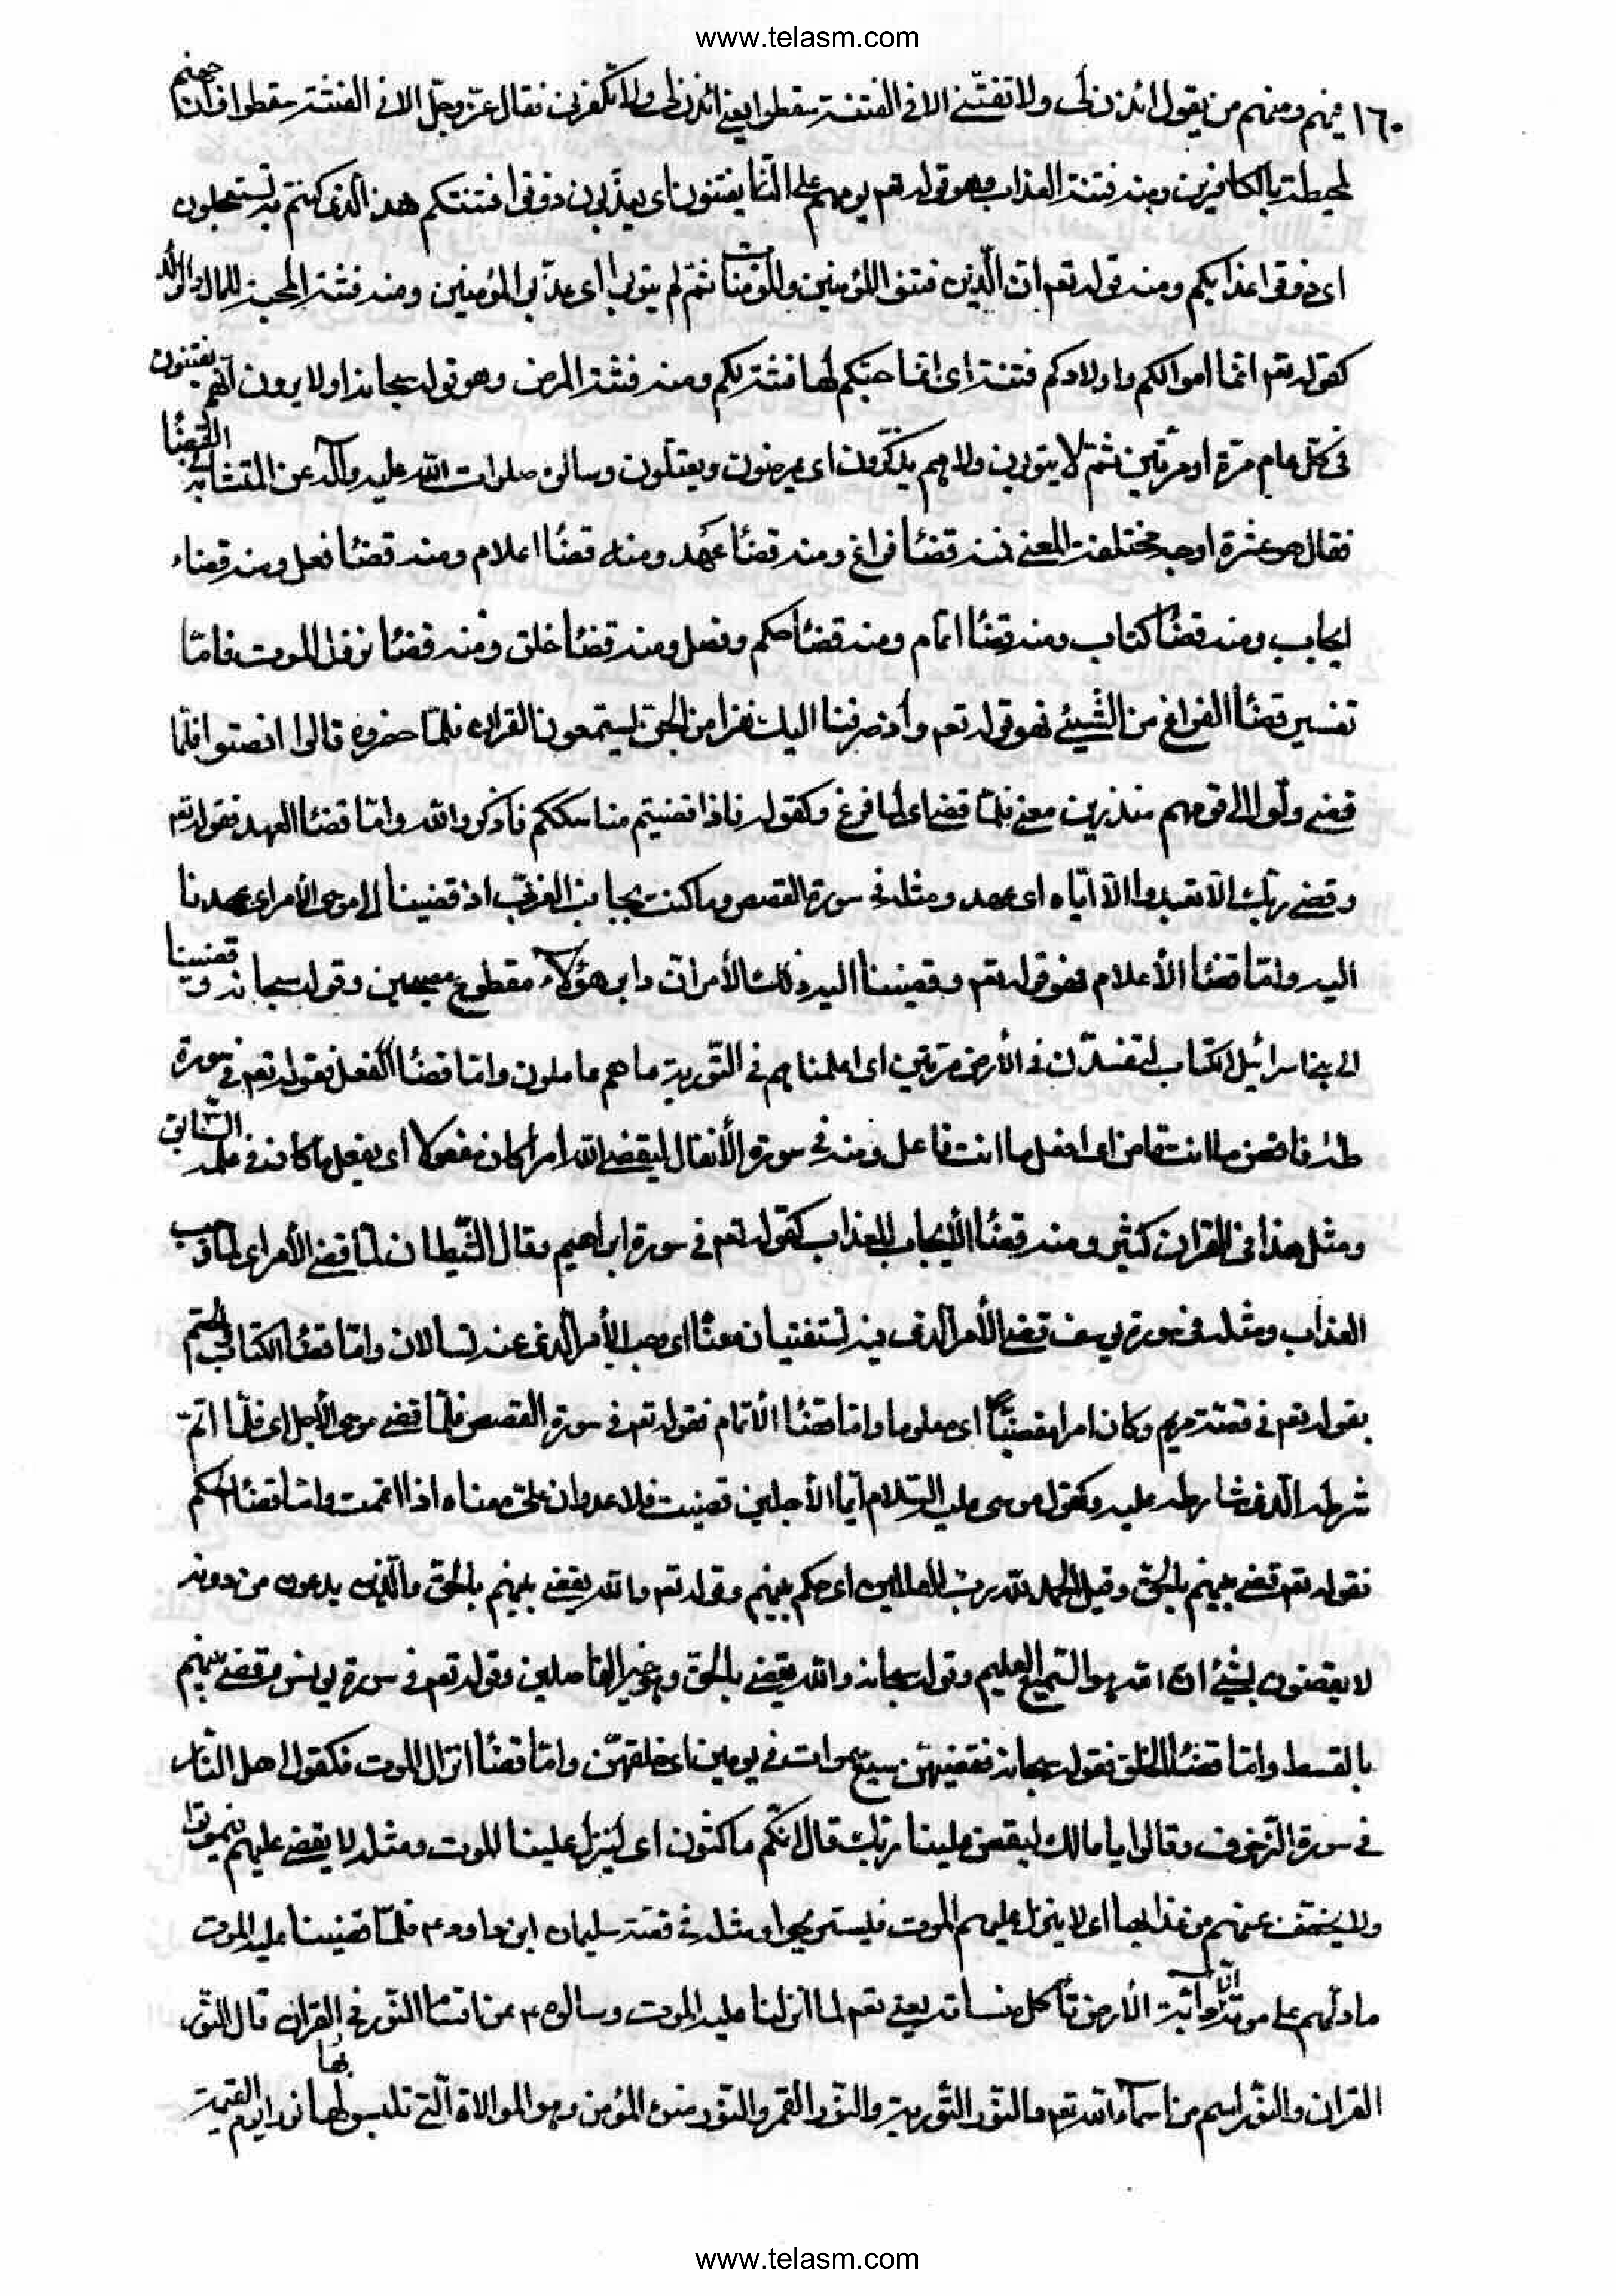 www.telasm.com
١٦٠ فيهم ومنهم من يقول ائذن لى ولا تفتنّى الا فى الفتنة سقطوا يعنى ائذن لى ولا تكفرنى فقال عزّ وجلّ الا فى الفتنة سقطوا وانّ جهنم
لمحيطة بالكافرين ومنه فتنة العذاب وهو قوله تعم يوم هم على النّار يفتنون اى يعذّبون ذوقوا فتنتكم هذا الّذى كنتم به تستعجلون
اى ذوقوا عذابكم ومنه قوله تعم انّ الّذين فتنوا المؤمنين والمؤمنات ثمّ لم يتوبوا اى عذّبوا المؤمنين ومنه فتنة المحبّة للمال والولد
كقوله تعم انّما اموالكم واولادكم فتنة اى انّما حبّكم لها فتنة لكم ومنه فتنة المرض وهو قوله سبحانه اولا يرون انّهم يفتنون
فى كلّ عام مرّة او مرّتين ثمّ لا يتوبون ولا هم يذكّرون اى يمرضون ويعتلّون وسالوه صلوات اللّه عليه وآله عن المتشابه فى القضاء
فقال هو عشرة اوجه مختلفة المعنى فمنه قضاء فراغ ومنه قضاء عهد ومنه قضاء اعلام ومنه قضاء فعل ومنه قضاء
ايجاب ومنه قضاء كتاب ومنه قضاء اتمام ومنه قضاء حكم وفصل ومنه قضاء خلق ومنه قضاء نزول الموت فامّا
تفسير قضاء الفراغ من الشّيئ فهو قوله تعم واذ صرفنا اليك نفرا من الجنّ يستمعون القران فلمّا حضروه قالوا انصتوا فلمّا
قضى ولّوا الى قومهم منذرين معنى فلمّا قضى اى لمّا فرغ وكقوله فاذا قضيتم مناسككم فاذكروا اللّه وامّا قضاء العهد فقوله تعم
وقضى ربّك الّا تعبدوا الّا ايّاه اى عهد ومثله فى سورة القصص وما كنت بجانب الغربىّ اذ قضينا الى موسى الأمر اى عهدنا
اليه وامّا قضاء الأعلام فهو قوله تعم وقضينا اليه ذلك الأمر انّ دابر هؤلاء مقطوع مصبحين وقوله سبحانه وقضينا
الى بنى اسرائيل فى الكتاب لتفسدنّ فى الأرض مرّتين اى اعلمناهم فى التّورية ما هم عاملون وامّا قضاء الفعل فقوله تعم فى سورة
طه فاقض ما انت قاض اى افعل ما انت فاعل ومنه فى سورة الأنفال ليقضى اللّه امرا كان مفعولا اى يفعل ما كان فى علمه السّابق
ومثل هذا فى القران كثير ومنه قضاء الأيجاب للعذاب كقوله تعم فى سورة ابراهيم وقال الشّيطان لمّا قضى الأمر اى لمّا وجب
العذاب ومثله فى سورة يوسف قضى الأمر الّذى فيه تستفتيان معناه اى وجب الأمر الّذى عنه تسالان وامّا قضاء الكتاب والحتم
بقوله تعم فى قصّة مريم وكان امرا مقضيّا اى معلوما وامّا قضاء الأتمام فقوله تعم فى سورة القصص فلمّا قضى موسى الأجل اى فلمّا اتمّ
شرطه الّذى شارطه عليه وكقول موسى عليه السّلام ايّما الأجلين قضيت فلا عدوان علىّ معناه اذا اتممت وامّا قضاء الحكم
فقوله تعم قضى بينهم بالحقّ وقيل الحمد للّه ربّ العالمين اى حكم بينهم وقوله تعم واللّه يقضى بينهم بالحقّ والّذين يدعون من دونه
لا يقضون بشيئ انّ اللّه هو السّميع العليم وقوله سبحانه واللّه يقضى بالحقّ وهو خير الفاصلين وقوله تعم فى سورة يونس وقضى بينهم
بالقسط وامّا قضاء الخلق فقوله سبحانه فقضيهنّ سبع سموات فى يومين اى خلقهنّ وامّا قضاء انزال الموت فكقول اهل النّار
فى سورة الزّخرف وقالوا يا مالك ليقض علينا ربّك قال انّكم ماكثون اى لينزل علينا الموت ومثله لا يقضى عليهم فيموتوا
ولا يخفّف عنهم من عذابها اى لا ينزل عليهم الموت فيستريحوا ومثله فى قصّة سليمان ابن داود ٤ فلمّا قضينا عليه الموت
ما دلّهم على موته الّا دابّة الأرض تأكل منساته يعنى تعم لمّا انزلنا عليه الموت وسالوه ٤ عن اقسام النّور فى القران قال النّور
القران والنّور اسم من اسماء اللّه تعم والنّور التّورية والنّور القمر والنّور ضوء المؤمن وهو الموالاة الّتى تلبس لها بها نورا يوم القيمة
www.telasm.com